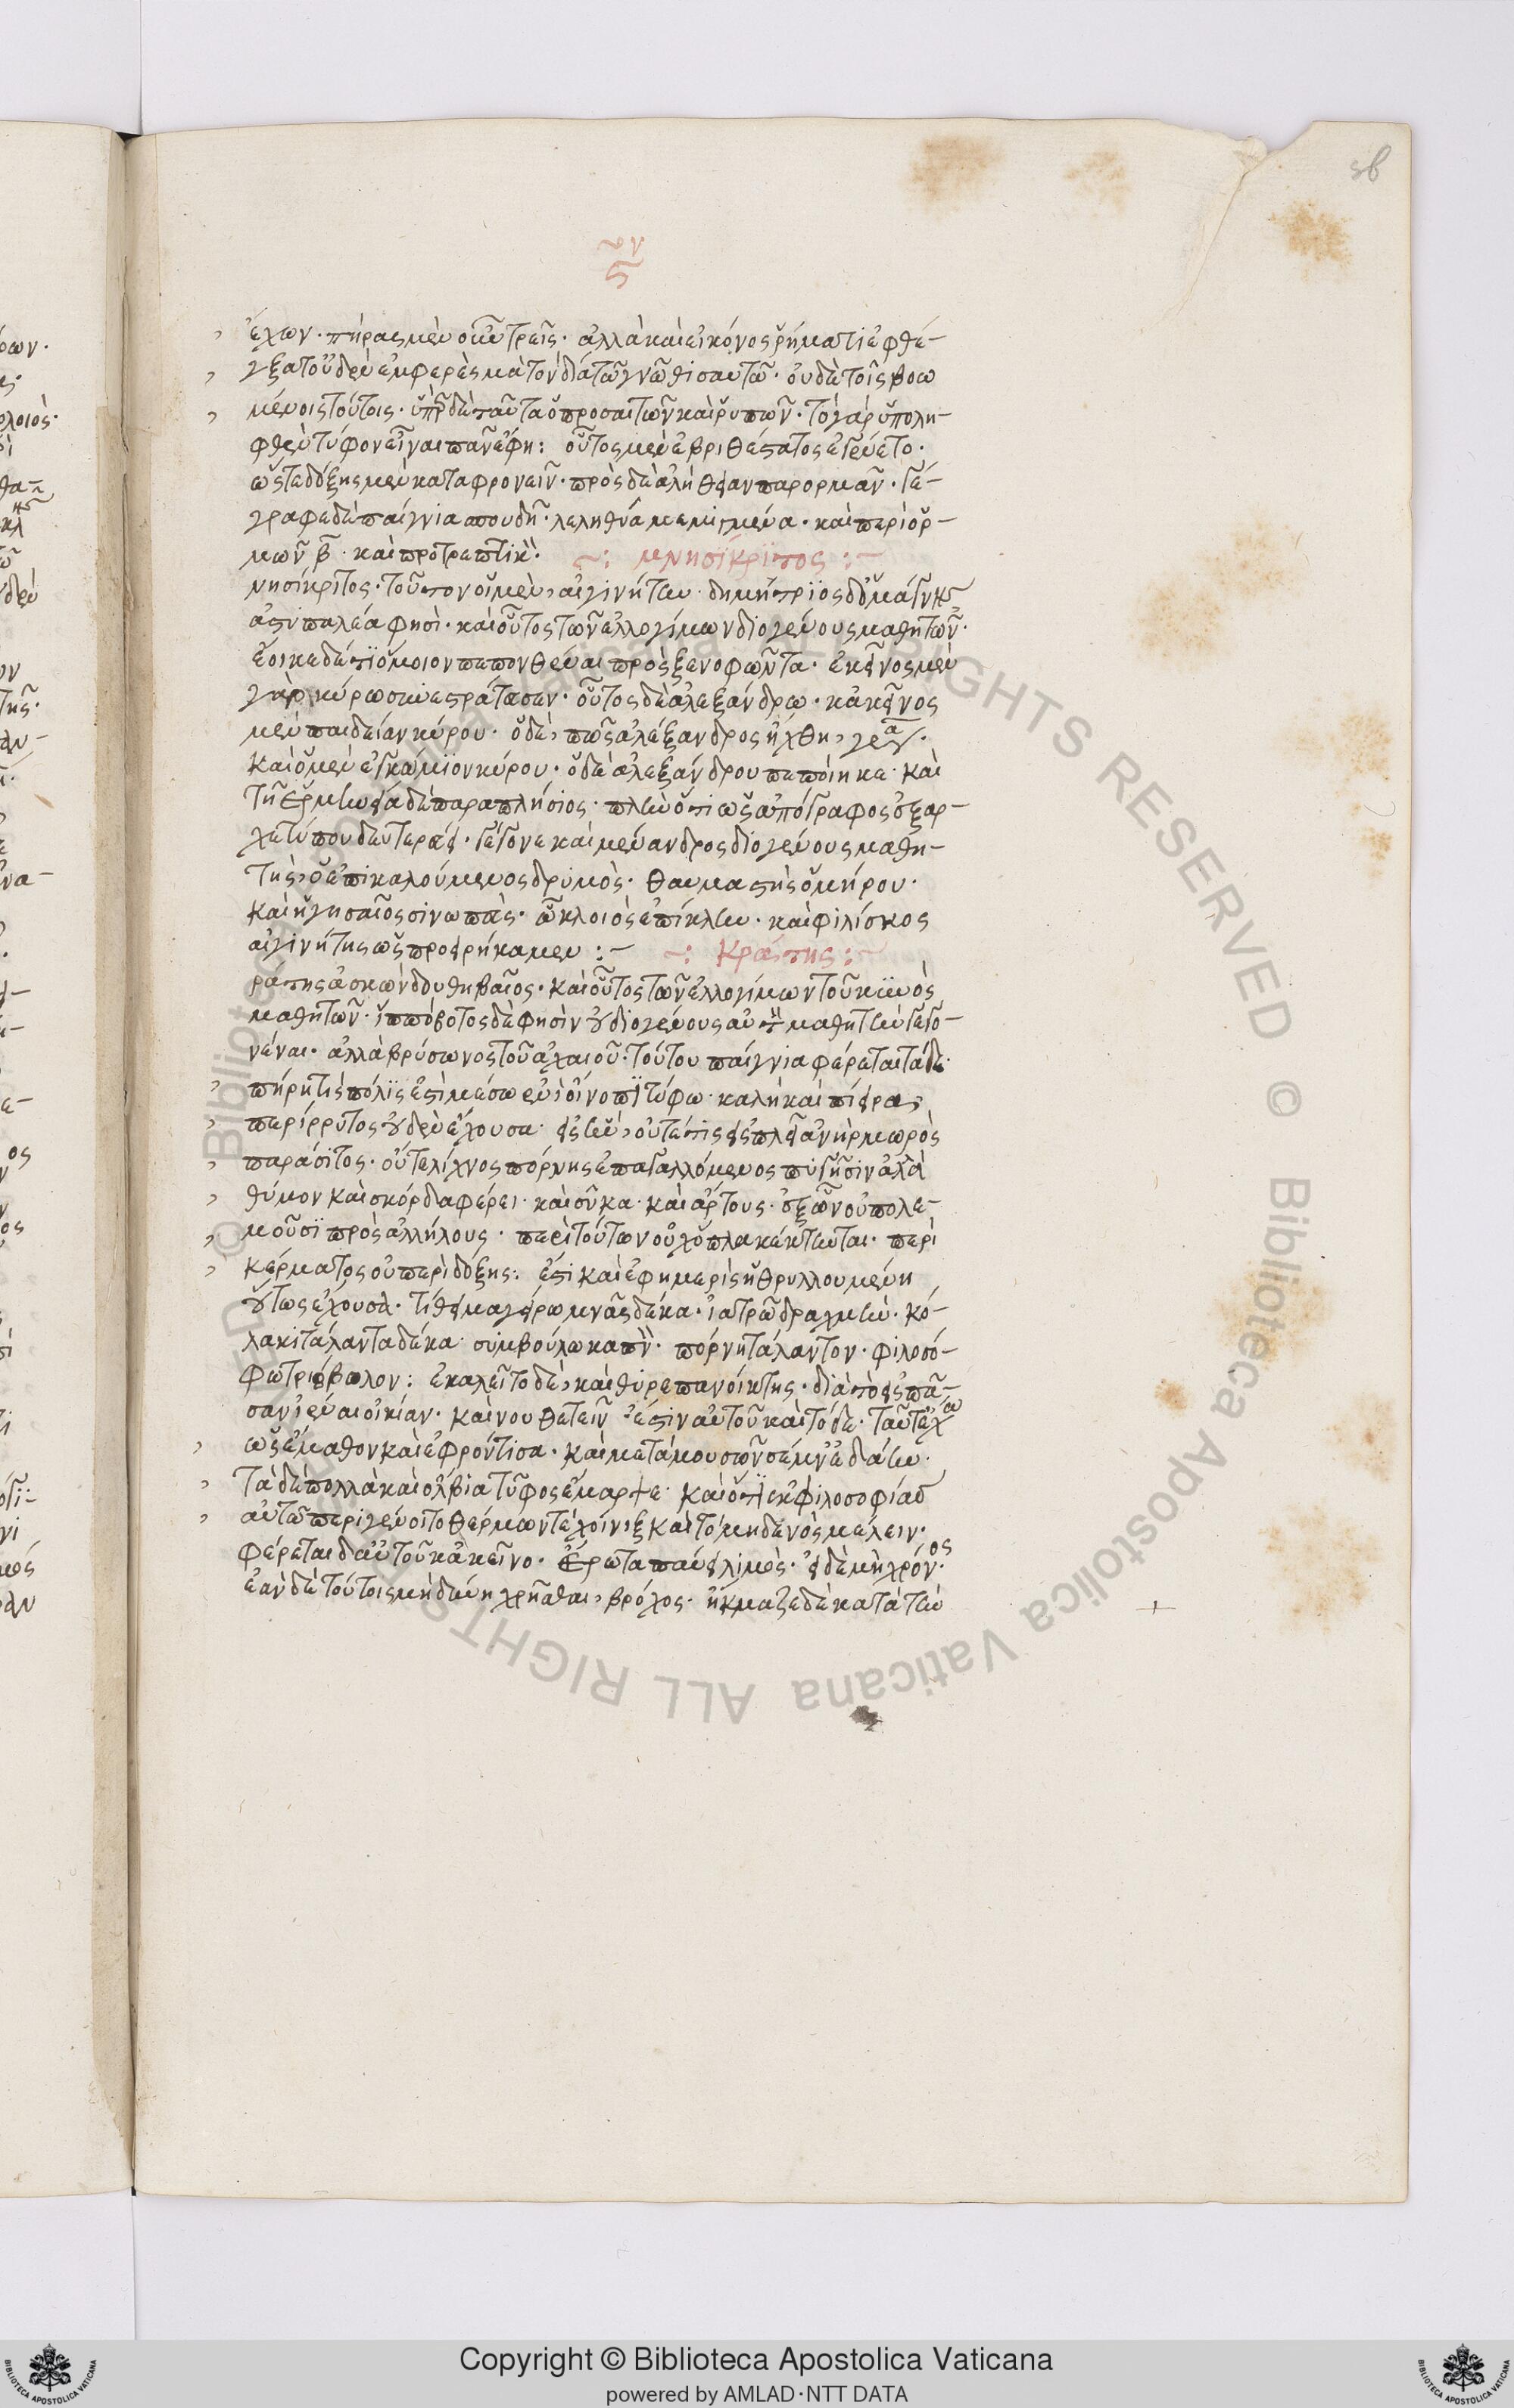 ἔχων· πήρας μὲν οὖν τρεῖς· ἀλλὰ καὶ εἰκόνος ῥήματι ἐφθέ-
γξατο οὐδὲν ἐμφερὲς μὰ τὸν δία τῶ γνῶθι σαυτῶ· οὐδὲ τοῖς βοω
μένοις τούτοις· ὑπὲρ δὲ ταῦτα ὁ προσαιτῶν καὶ ῥυπῶν· τὸ γὰρ ὑπολη-
φθὲν τύφον εἶναι πᾶν ἔφη: οὗτος μὲν ἐμβριθέστατος ἐγένετο·
ὥστε δόξης μὲν καταφρονεῖν· πρὸς δὲ ἀλήθειαν παρορμᾶν· γέ-
γραφε δὲ παίγνια σπουδῆ λεληθυία μεμιγμένα· καὶ περὶ ὁρ-
μῶν β̅· καὶ προτρεπτικ·
~: μνησίκριτος :~
νησίκριτος· τοῦτον οἱ μὲν αἰγινήτην· δημήτριος δ' ὁ μάγνης
ἀστυπαλέα φησὶ· καὶ οὗτος τῶν ἐλλογίμων διογένους μαθητῶν·
ἔοικε δέ τι ὅμοιον πεπονθέναι πρὸς ξενοφῶντα· ἐκεῖνος μὲν
γὰρ κύρω συνεστράτευσεν· οὗτος δὲ ἀλεξάνδρω· κἀκεῖνος
μὲν παιδείαν κύρου· ὁ δὲ πῶς ἀλέξανδρος ἤχθη
καὶ ὁ μὲν ἐγκώμιον κύρου· ὁ δὲ ἀλεξάνδρου πεποίηκε· καὶ
τῆ ἑρμηνεία δὲ παραπλήσιος· πλὴν ὅτι ὡς ἀπόγραφος ἐξ ἀρ-
χετύπου δευτερεύει· γέγονε καὶ μένανδρος διογένους μαθη-
τὴς ὁ ἐπικαλούμενος δρυμὸς· θαυμαστὴς ὁμήρου·
καὶ ἡγησαῖος σινωπεὺς· ὁ κλοιὸς ἐπίκλην· καὶ φιλίσκος
αἰγινήτης ὡς προειρήκαμεν :~
~: Κράτης :~
ρατης ἀσκώνδου θηβαῖος· καὶ οὗτος τῶν ἐλλογίμων τοῦ κυνὸς
μαθητῶν· ἱππόβοτος δὲ φησὶν οὐ διογένους αὐτὸν μαθητὴν γεγο-
νέναι· ἀλλὰ βρύσωνος τοῦ ἀχαιοῦ· τούτου παίγνια φέρεται τάδε·
πήρη τις πόλις ἐστὶ μέσω ἐνὶ οἴνοπι τύφω· καλὴ καὶ πίειρα
περίρρυτος οὐδὲν ἔχουσα· εἰς ἣν οὔτε τις εἰσπλεῖ ἀνὴρ μωρὸς
παράσιτος· οὔτε λίχνος πόρνης ἐπαγαλλόμενος πυγῆσιν ἀλλὰ
θύμον καὶ σκόρδα φέρει· καὶ σῦκα· καὶ ἄρτους· ἐξ ὧν οὐ πολε-
μοῦσι πρὸς ἀλλήλους· περὶ τούτων οὐχ ὅπλα κέκτηνται· περὶ
κέρματος οὐ περὶ δόξης: ἔστι καὶ ἐφημερὶς ἡ θρυλλουμένη
οὕτως ἔχουσα· τίθει μαγείρω μνᾶς δέκα· ἰατρῶ δραχμὴν· κό-
λακι τάλαντα δέκα· συμβούλω καπνὸν· πόρνη τάλαντον· φιλοσό-
φω τριώβολον: ἐκαλεῖτο δὲ καὶ θυρεπανοίκτης· διὰ τὸ εἰς πᾶ-
σαν ἰέναι οἰκίαν· καὶ νουθετεῖν· ἔστιν αὐτοῦ καὶ τόδε· ταῦτ' ἔχω
ὡς ἔμαθον καὶ ἐφρόντισα· καὶ μετὰ μουσῶν σέμν' ἐδάην·
τὰ δὲ πολλὰ καὶ ὄλβια τῦφος ἔμαρψε· καὶ ὅτι ἐκ φιλοσοφίας
αὐτῶ περιγένοιτο θέρμων τε χοίνιξ καὶ τὸ μηδενὸς μέλειν·
φέρεται δ' αὐτοῦ κἀκεῖνο· ἔρωτα παύει λιμὸς· εἰ δὲ μὴ χρόνος·
ἐὰν δὲ τούτοις μὴ δύνη χρῆσθαι βρόχος· ἤκμαζε δὲ κατὰ τὴν
Copyright © Biblioteca Apostolica Vaticana
powered by AMLAD·NTT DATA